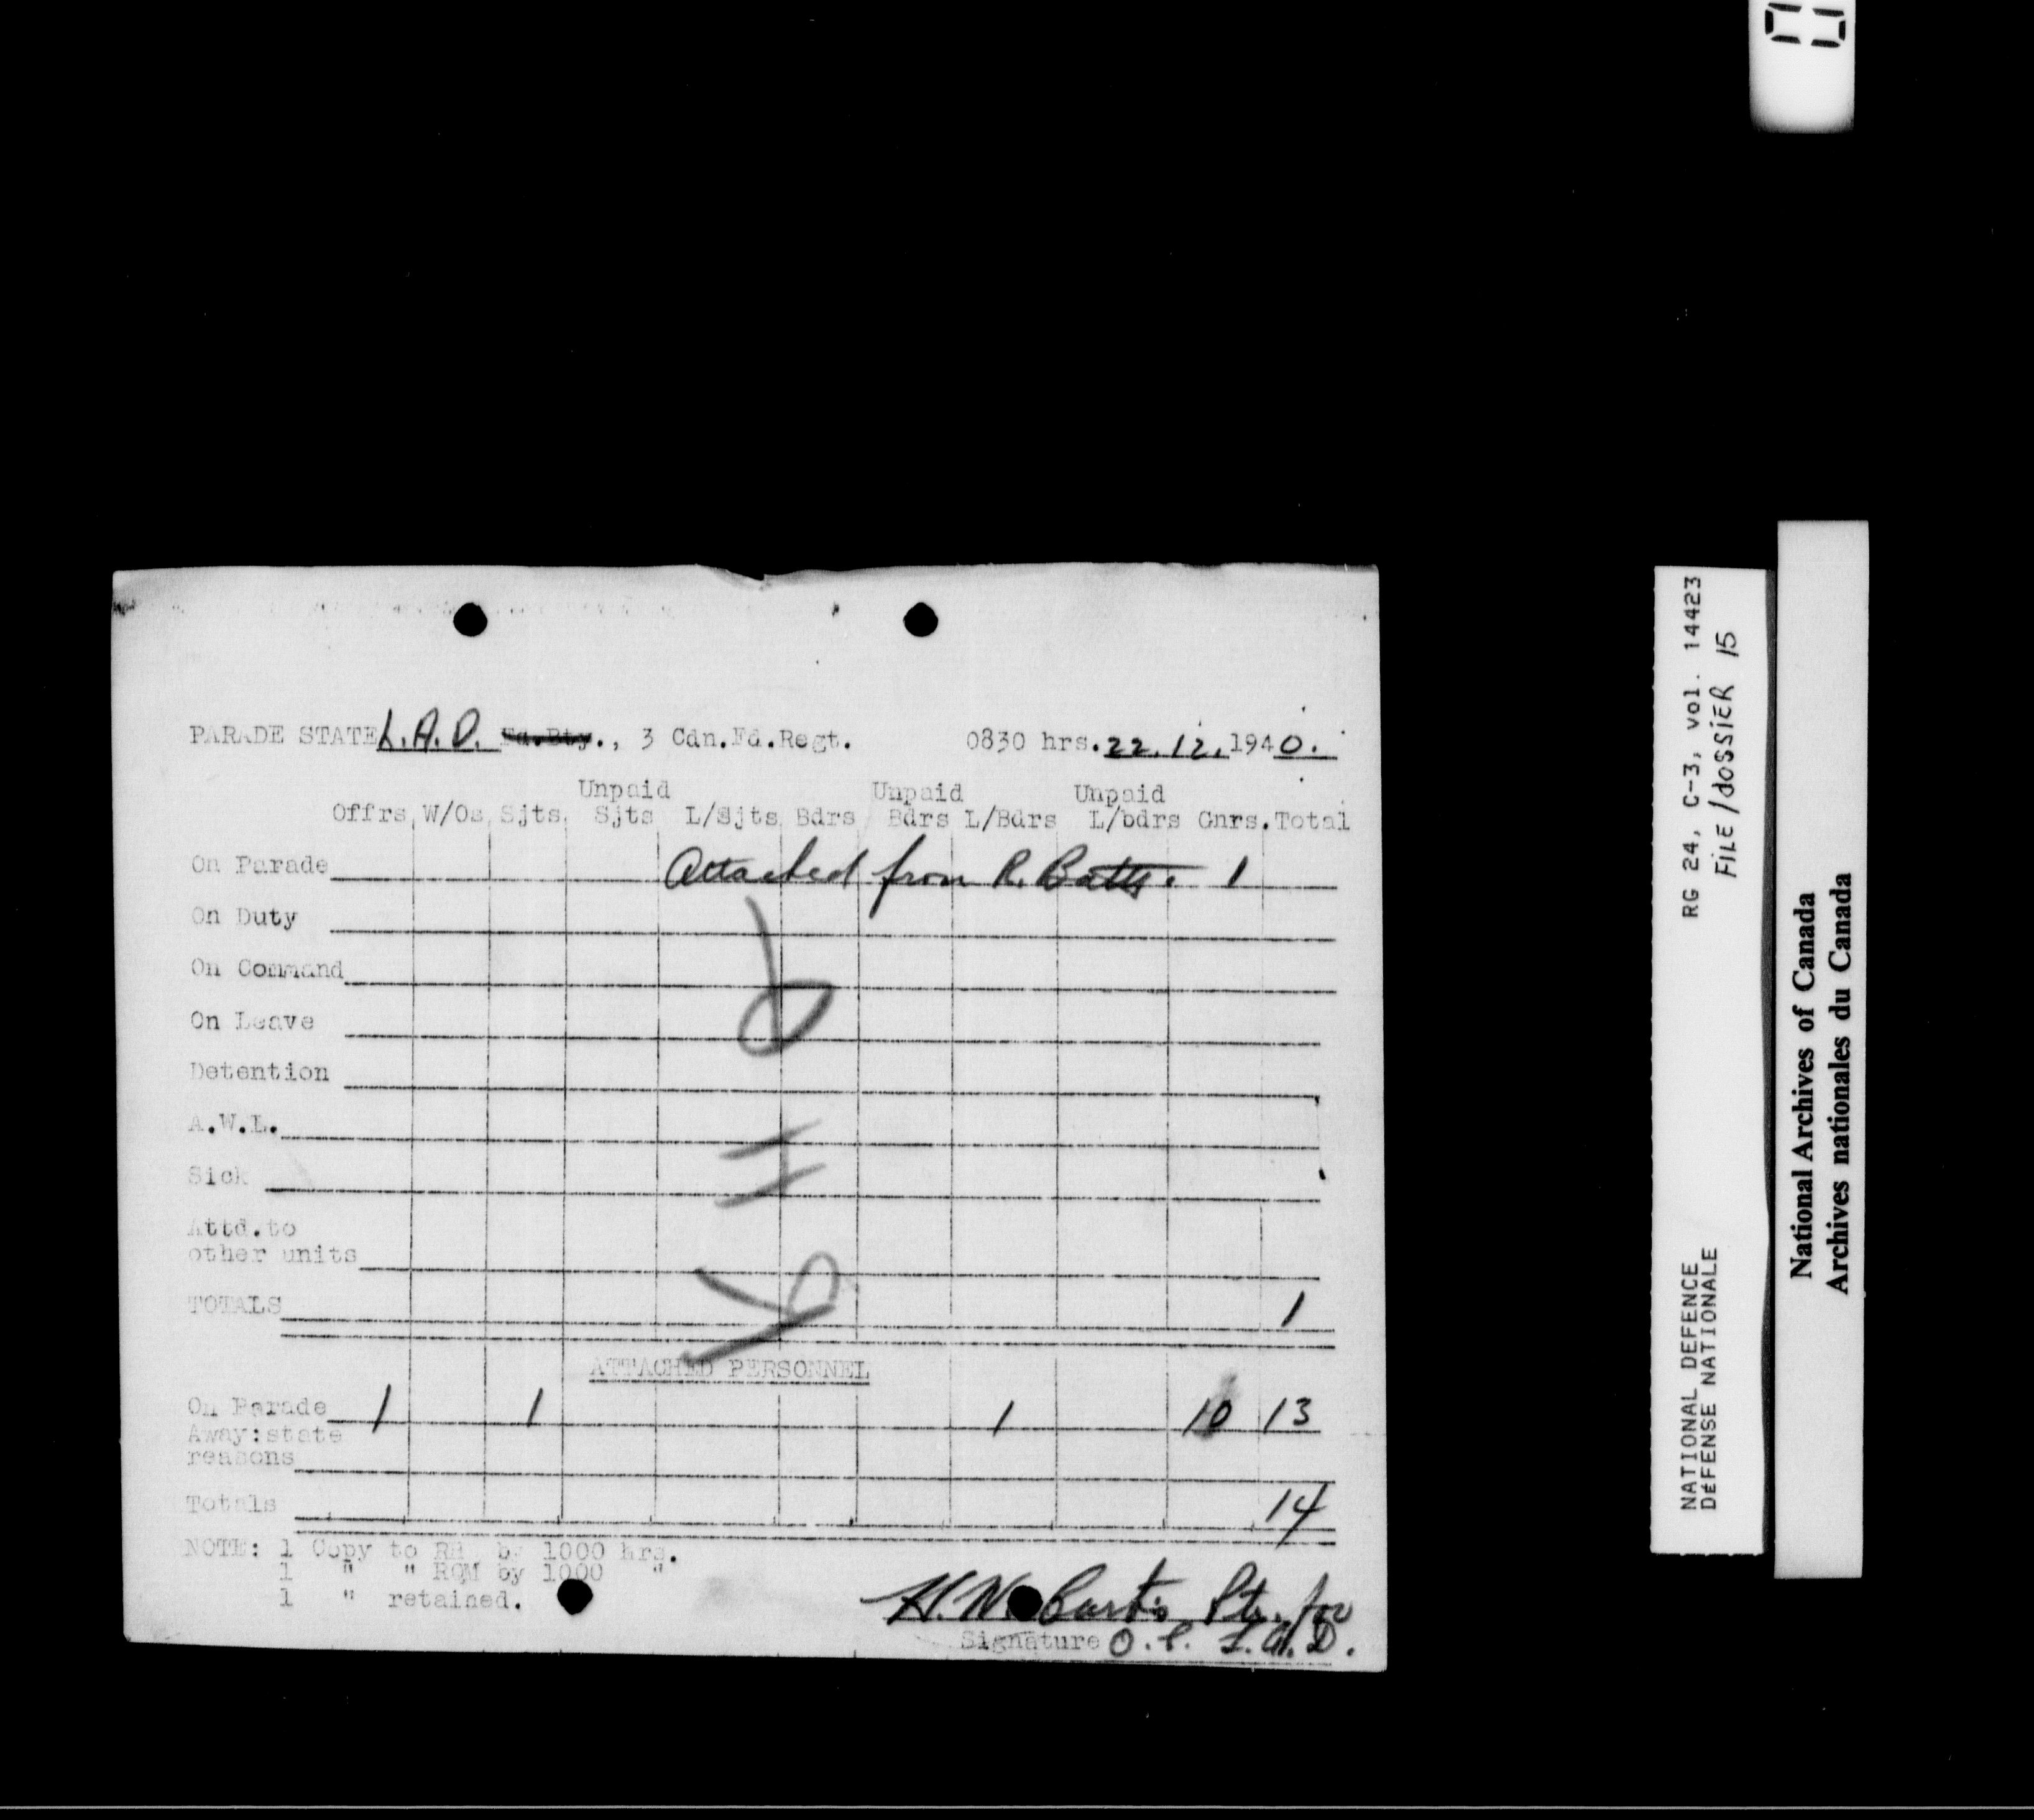 PARADE STATE L.A.D. Fd.Bty., 3 Cdn.Fd.Regt. 0830 hrs. 22.12.1940.
Unpaid Unpaid Unpaid
Offrs W/Os Sjts Sjts L/Sjts Bdrs Bdrs L/Bdrs L/bdrs Gnrs. Total
On Parade Attached from R. Batty. 1
On Duty
On Command
On Leave
Detention
A.W.L.
Sick
Attd.to
other units
TOTALS 1
ATTACHED PERSONNEL
On Parade 1 1 1 10 13
Away:state
reasons
Totals 14
NOTE: 1 Copy to RH by 1000 hrs.
1 " " RQM by 1000 "
1 " retained.
H.W. Curtis Pte. for
Signature O.C. L.A.D.
RG 24, C-3, vol. 14423
FILE/dossier 15
NATIONAL DEFENCE
DéFENSE NATIONALE
National Archives of Canada
Archives nationales du Canada